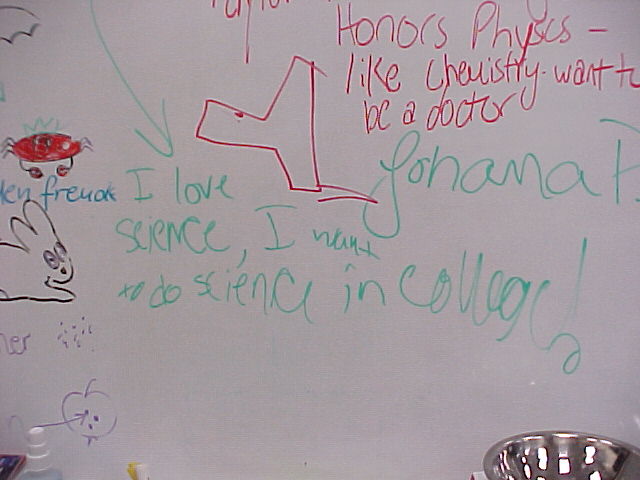 Honors Physcs -
like Chemistry. want to
be a doctor
Johana P.
I love
science, I want
to do science in College!